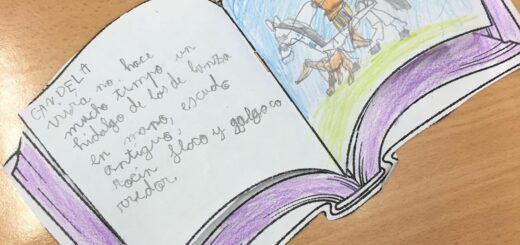 CANDELA
vivía no hace
mucho tiempo un
hidalgo de los de lanza
en mano, escudo
antiguo,
rocín flaco y galgo co
rredor.